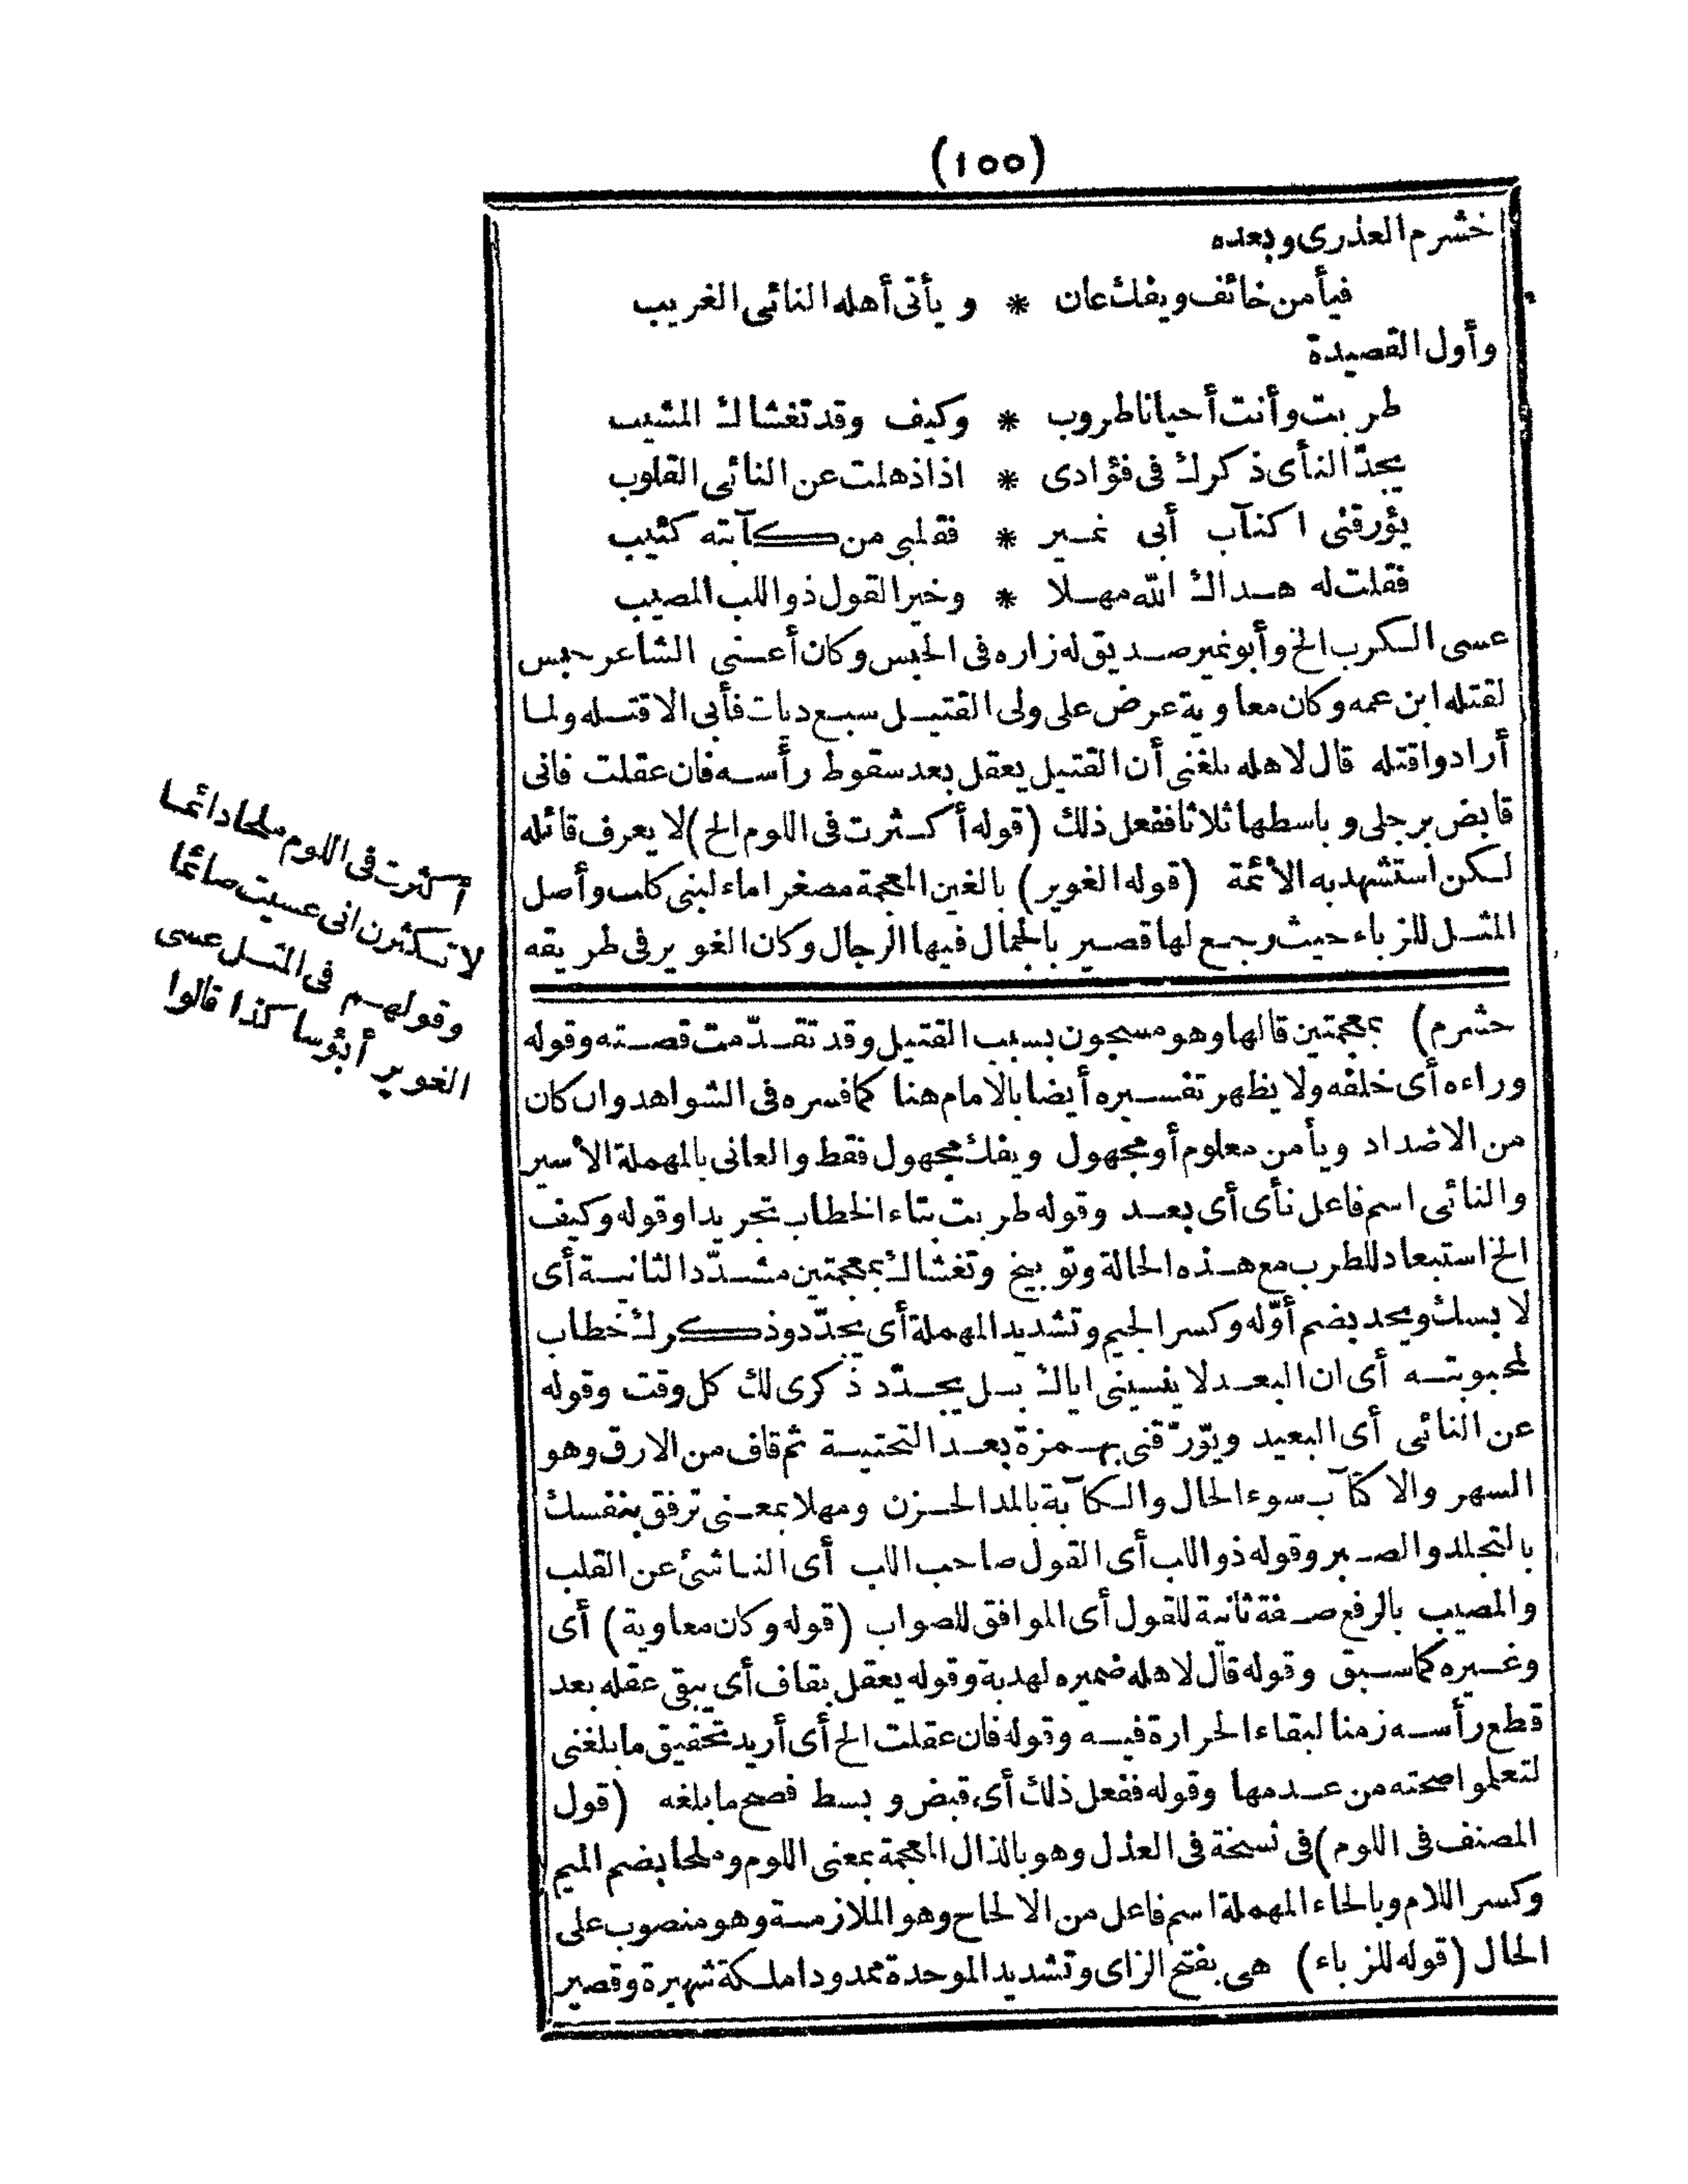 (١٥٥)
خشرم العذرى وبعده
فيأمن خائف ويفك عان * ويأتى أهله النائى الغريب
وأول القصيدة
طربت وأنت أحيانا طروب * وكيف وقد تغشاك المشيب
يجدّ النأى ذكرك فى فؤادى * اذا ذهلت عن النائى القلوب
يؤرقنى اكتآب أبى نمير * فقلبى من كآبته كئيب
فقلت له هداك الله مهلا * وخير القول ذو اللب المصيب
عسى الكرب الخ وأبو نمير صديق له زاره فى الحبس وكان أعنى الشاعر حبس
لقتله ابن عمه وكان معاوية عرض على ولى القتيل سبع ديات فأبى الا قتله ولما
أرادوا قتله قال لاهله بلغنى أن القتيل يعقل بعد سقوط رأسه فان عقلت فانى
قابض برجلى وباسطها ثلاثا ففعل ذلك (قوله أكثرت فى اللوم الخ) لا يعرف قائله
لكن استشهد به الأئمة (قوله الغوير) بالغين المعجمة مصغرا ماء لبنى كلب وأصل
المثل للزباء حيث رجع لها قصير بالجمال فيها الرجال وكان الغوير فى طريقه
أكثرت فى اللوم ملحا دائما
لا تكثرن انى عسيت صائما
وقولهم فى المثل عسى
الغوير أبؤسا كذا قالوا
خشرم) بمعجمتين قالها وهو مسجون بسبب القتيل وقد تقدّمت قصته وقوله
وراءه أى خلفه ولا يظهر تفسيره أيضا بالامام هنا كما فسره فى الشواهد وان كان
من الاضداد ويأمن معلوم أو مجهول ويفك مجهول فقط والعانى بالمهملة الأسير
والنائى اسم فاعل نأى أى بعد وقوله طربت بتاء الخطاب تجريدا وقوله وكيف
الخ استبعاد للطرب مع هذه الحالة وتوبيخ وتغشاك بمعجمتين مشدّدا الثانية أى
لابسك ويجد بضم أوّله وكسر الجيم وتشديد المهملة أى يجدّد وذكرك خطاب
لمحبوبته أى ان البعد لا ينسينى اياك بل يجدّد ذكرى لك كل وقت وقوله
عن النائى أى البعيد ويؤرّقنى بهمزة بعد التحتية ثم قاف من الارق وهو
السهر والاكتآب سوء الحال والكآبة بالمد الحزن ومهلا بمعنى ترفق بنفسك
بالتجلد والصبر وقوله ذو اللب أى القول صاحب اللب أى الناشئ عن القلب
والمصيب بالرفع صفة ثانية للقول أى الموافق للصواب (قوله وكان معاوية) أى
وغيره كما سبق وقوله قال لاهله ضميره لهدبة وقوله يعقل بقاف أى يبقى عقله بعد
قطع رأسه زمنا لبقاء الحرارة فيه وقوله فان عقلت الخ أى أريد تحقيق ما بلغنى
لتعلموا صحته من عدمها وقوله ففعل ذلك أى قبض وبسط فصح ما بلغه (قول
المصنف فى اللوم) فى نسخة فى العذل وهو بالذال المعجمة بمعنى اللوم وملحا بضم الميم
وكسر اللام وبالحاء المهملة اسم فاعل من الالحاح وهو الملازمة وهو منصوب على
الحال (قوله للزباء) هى بفتح الزاى وتشديد الموحدة ممدودا ملكة شهيرة وقصير